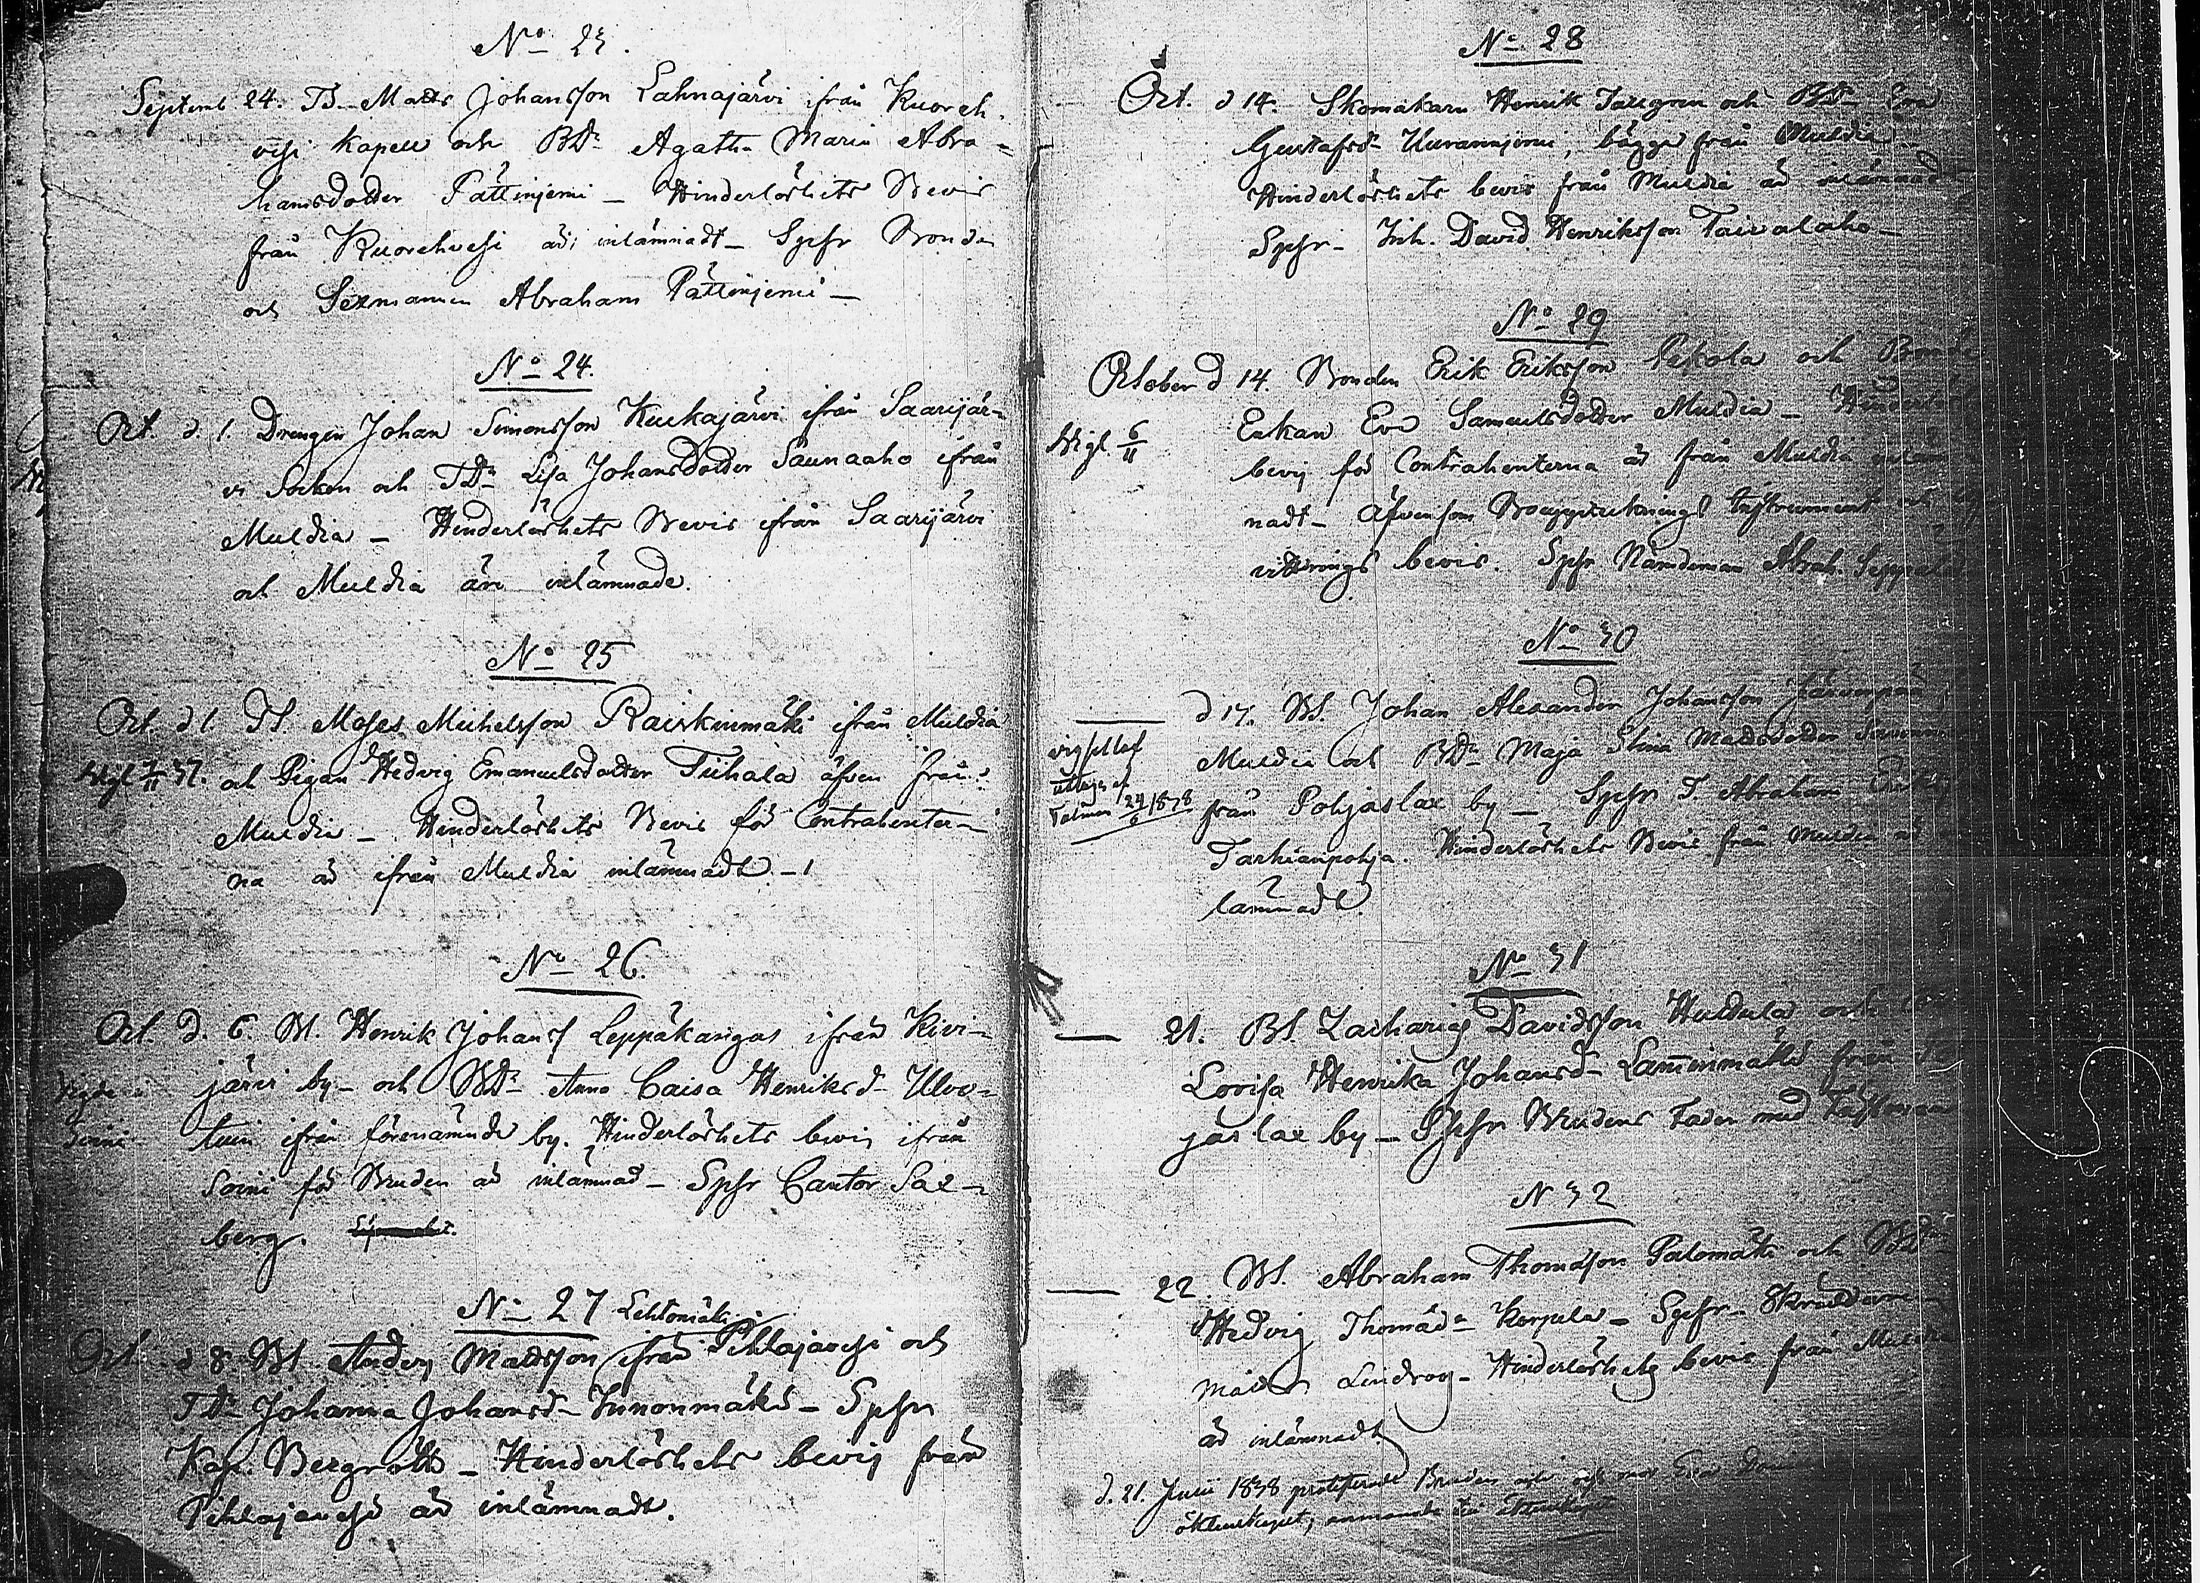 No 23.
Septemb 24. TS. Matts Johansson Lahnajärvi ifrån Kuoreh-
vesi kapell och BDr Agatha Maria Abra-
hamsdotter Pättinjemi – Hinderlöshets Bevis
från Kuorehvesi är inlämnadt – Spsr Bonden
och Sexmannen Abraham Pättinjemi –
No 24.
Oct. d. 1. Drengen Johan Simonsson Kuckajärvi ifrån Saarijär-
vi Socken och TDr Lisa Johansdotter Saunaaho ifrån
Muldia – Hinderlöshets Bevis ifrån Saarijärvi
och Muldia äro inlämnade.
No 25
Oct. d 1. TS. Moses Michelsson Raiskinmäki ifrån Muldia
Wigl 7/11 37. och Pigan Hedvig Emanuelsdotter Tiihala äfven från
Muldia – Hinderlöshets Bevis för Contrahenter-
na är ifrån Muldia inlämnadt. –
No 26.
Oct. d. 6. BS. Henrik Johanss Leppäkangas ifrån Kivi-
järvi by – och BDr Anna Caisa Henriksd–
Vigde i Soini tuni ifrån förenämnde by. Hinderlöshets bevis ifrån
Soini för Bruden är inlämnad – Spsr Cantor Sax-
berg.
No 27 Lehtomäki
Oct. d 8. BS. Anders Mattsson ifrån Pihlajavesi och
TDr Johanna Johansd– – Spsr
Kap. Bergroth – Hinderlöshets bevis från
Pihlajavesi är inlämnadt.
No 28
Oct. d 14. Skomakarn Henrik och BDr Eva
Gustafsd– bägge från Muldia
Hinderlöshets bevis från Muldia är inlämnadt
Spsr – Inh. David Henriksson Taivalaho –
No 29
October d 14. Bonden Erik Eriksson Pekola och Bonde
Wigl 6/11 Enkan Eva Samuelsdotter Muldia – Hinderlös
bevis för Contrahenterna är från Muldia inläm
nadt – äfvensom Boupptecknings Instrument och
vittrings bevis. Spsr Nämdeman Abrah. Seppälä
No 30
d 17. BS. Johan Alexander Johansson
vigsellef
uttages af
24/6 1838
Muldia och BDr Maja Stina Mattsdotter
från Pohjaslax by – Spsr T. Abraham
Tarhianpohja. Hinderlöshets Bevis från Muldia är
lämnadt.
No 31
21. BS. Zacharias Davidsson Huldula och
Lovisa Henrika Johansd– Lamminmäki från
jaslax by – Spsr Brudens Fader med
N 32
22. BS. Abraham Thomasson Palomäki och BDr
Hedvig Thomäd– Korpula – Spsr – Skräddare
mäster Lindroos – Hinderlöshets bevis från Muld
är inlämnadt
d. 21. Junii 1838 protesterade Bruden